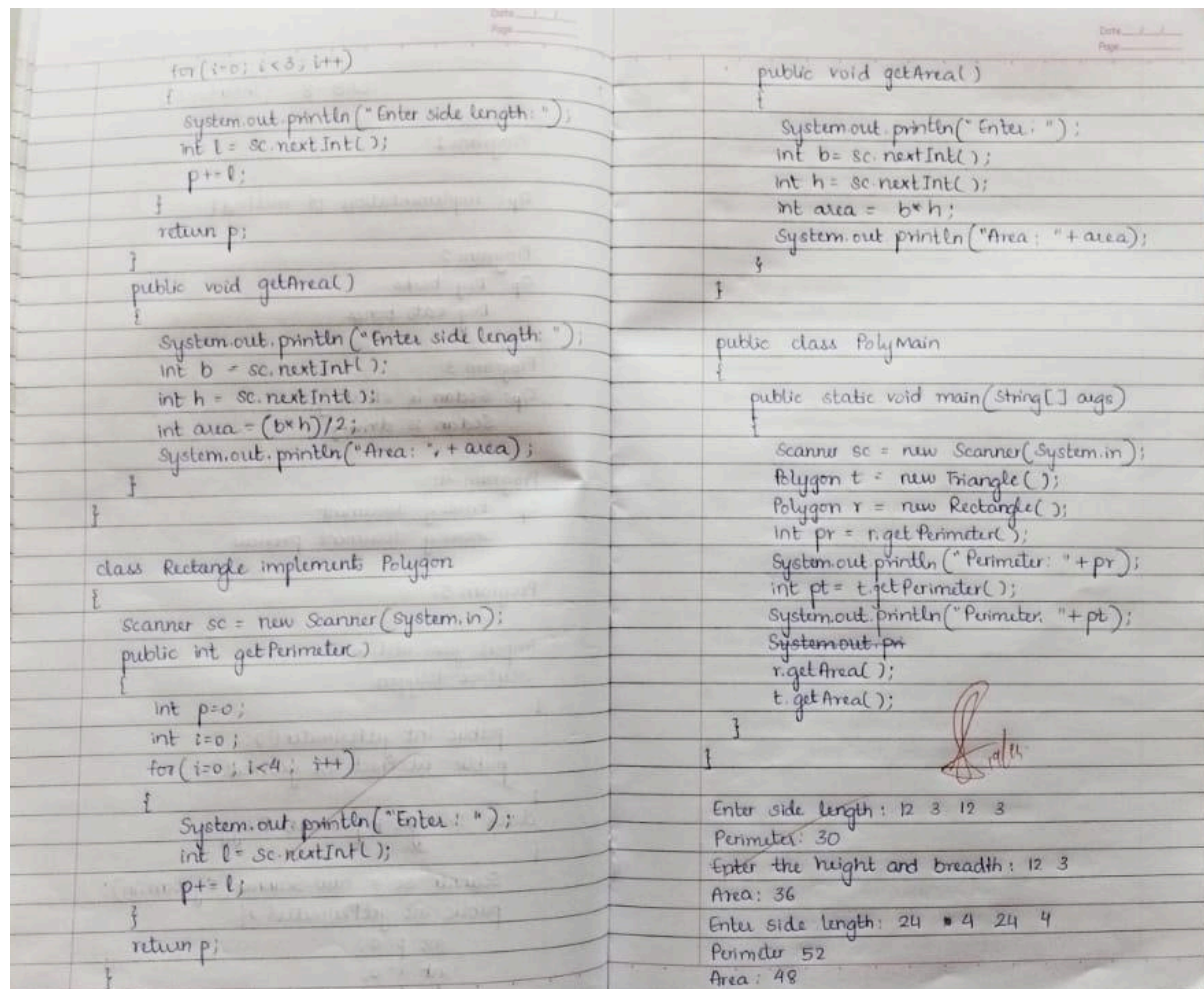 Date / /
Page
for(i=0; i<3; i++)
{
system.out.println("Enter side length: ");
int l = sc.nextInt();
p+=l;
}
return p;
}
public void getArea()
{
System.out.println("Enter side length: ");
int b = sc.nextInt();
int h = sc.nextInt();
int area = (b*h)/2;
System.out.println("Area: ", + area);
}
}
class Rectangle implements Polygon
{
Scanner sc = new Scanner(system.in);
public int getPerimeter()
{
int p=0;
int i=0;
for(i=0; i<4; i++)
{
System.out.println("Enter: ");
int l = sc.nextInt();
p+=l;
}
return p;
}
Date / /
Page
public void getArea()
{
System.out.println("Enter: ");
int b= sc.nextInt();
int h = sc.nextInt();
int area = b*h;
System.out println("Area: "+ area);
}
}
public class PolyMain
{
public static void main(String[] args)
{
Scanner sc = new Scanner(System.in);
Polygon t = new Triangle();
Polygon r = new Rectangle();
int pr = r.getPerimeter();
System.out println("Perimeter: "+pr);
int pt = t.getPerimeter();
System.out.println("Perimeter. "+pt);
System.out.pri
r.getArea();
t.getArea();
}
}
Enter side length: 12 3 12 3
Perimeter: 30
Enter the height and breadth: 12 3
Area: 36
Enter side length: 24 4 24 4
Perimeter 52
Area: 48